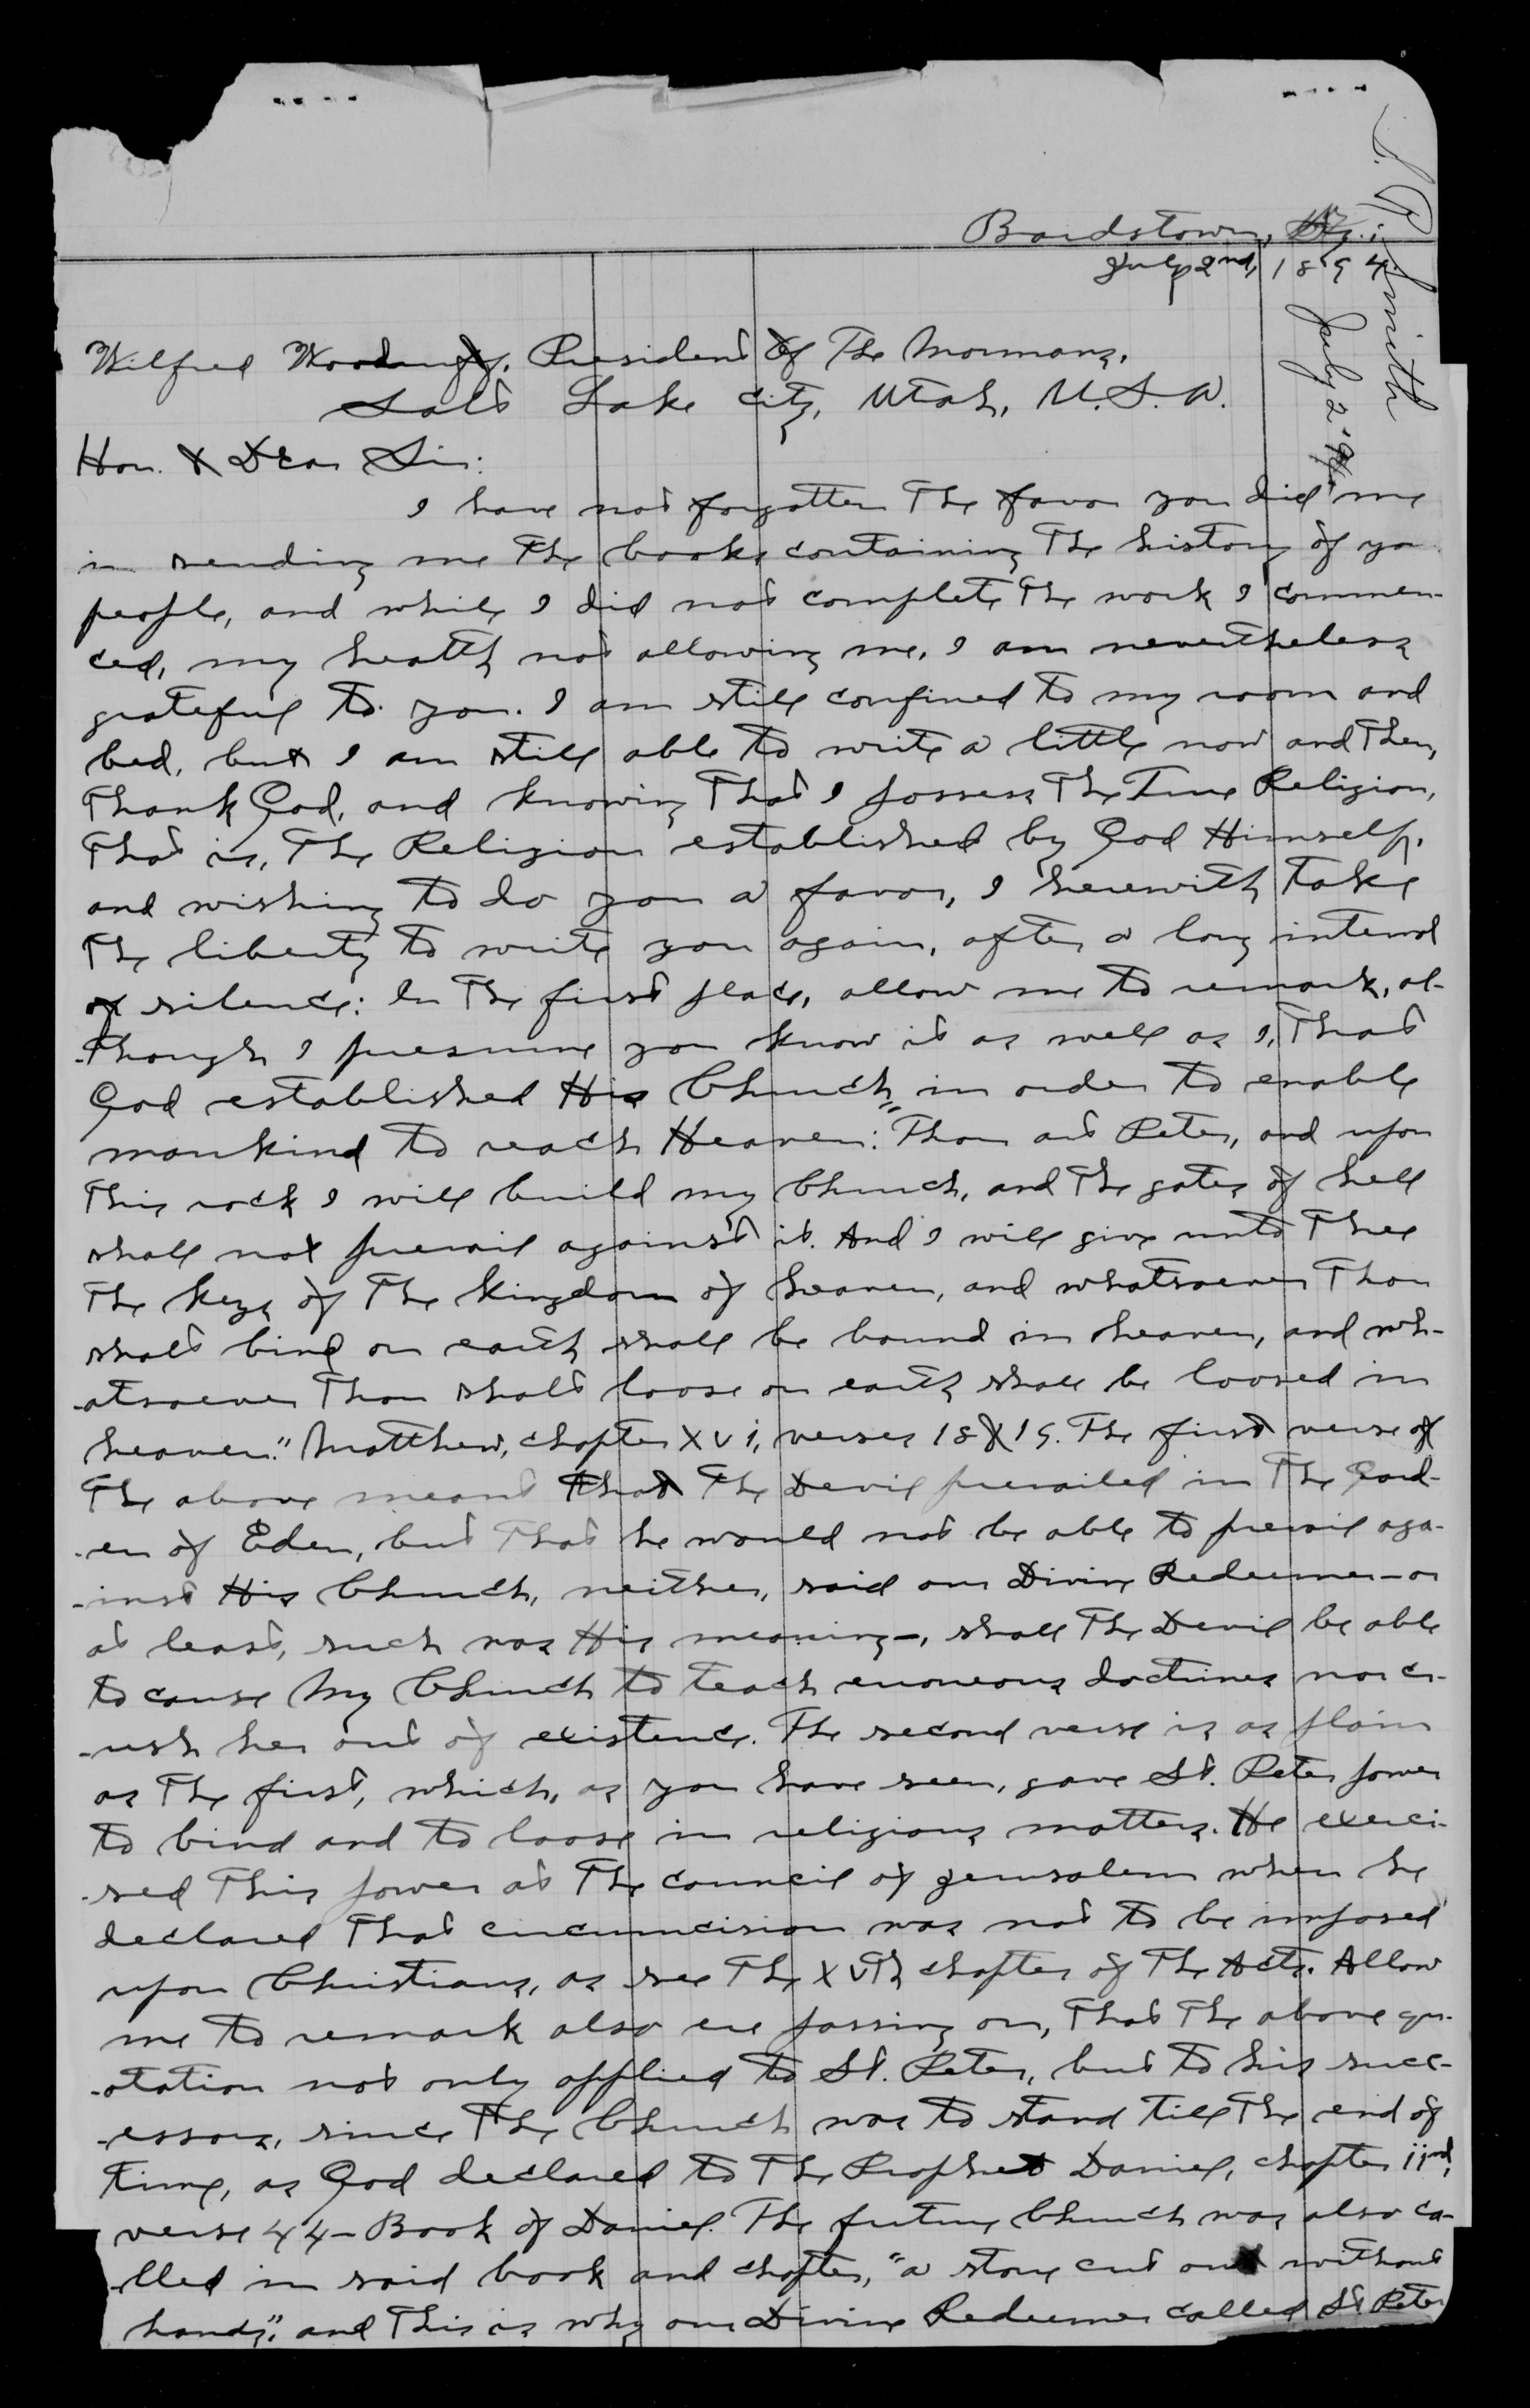 Bardstown, Ky.;
July 2nd, 1894
J. R. Smith
July 2 '94.
Wilfred Woodruff, President of The Mormons,
Salt Lake City, Utah, U.S.A.
Hon. & Dear Sir:
I have not forgotten The favor you did me
in sending me The books containing The history of you
people, and while I did not complete The work I commen-
ced, my health not allowing me, I am nevertheless
grateful to you. I am still confined to my room and
bed, but I am still able to write a little now and Then,
Thank God, and knowing That I possess The True Religion,
That is, The Religion established by God Himself,
and wishing to do you a favor, I herewith take
The liberty to write you again, after a long interval
of silence: In The first place, allow me to remark, al-
-though I presume you know it as well as I, That
God established His Church in order to enable
mankind to reach Heaven: "Thou art Peter, and upon
This rock I will build my Church, and The gates of hell
shall not prevail against it. And I will give unto Thee
The keys of The kingdom of heaven, and whatsoever Thou
shalt bind on earth shall be bound in heaven, and wh-
-atsoever Thou shalt loose on earth shall be loosed in
heaven." Matthew, chapter XVI, verses 18 & 19. The first verse of
The above meant that The Devil prevailed in The Gard-
-en of Eden, but That he would not be able to prevail aga-
-inst His Church, neither, said our Divine Redeemer—or
at least, such was His meaning—, shall The Devil be able
to cause My Church to teach erroneous doctrines nor cr-
-ush her out of existence. The second verse is as plain
as The first, which, as you have seen, gave St. Peter power
to bind and to loose in religious matters. He exerci-
-sed This power at The council of Jerusalem when he
declared That circumcision was not to be imposed
upon Christians, as see The XVTh chapter of The Acts. Allow
me to remark also ere passing on, That The above qu-
-otation not only applied to St. Peter, but to his succ-
-essors, since The Church was to stand till The end of
Time, as God declared to The Prophet Daniel, chapter iind,
verse 44—Book of Daniel. The future Church was also ca-
-lled in said book and chapter, "a stone cut out without
hands," and This is why our Divine Redeemer called St. Peter